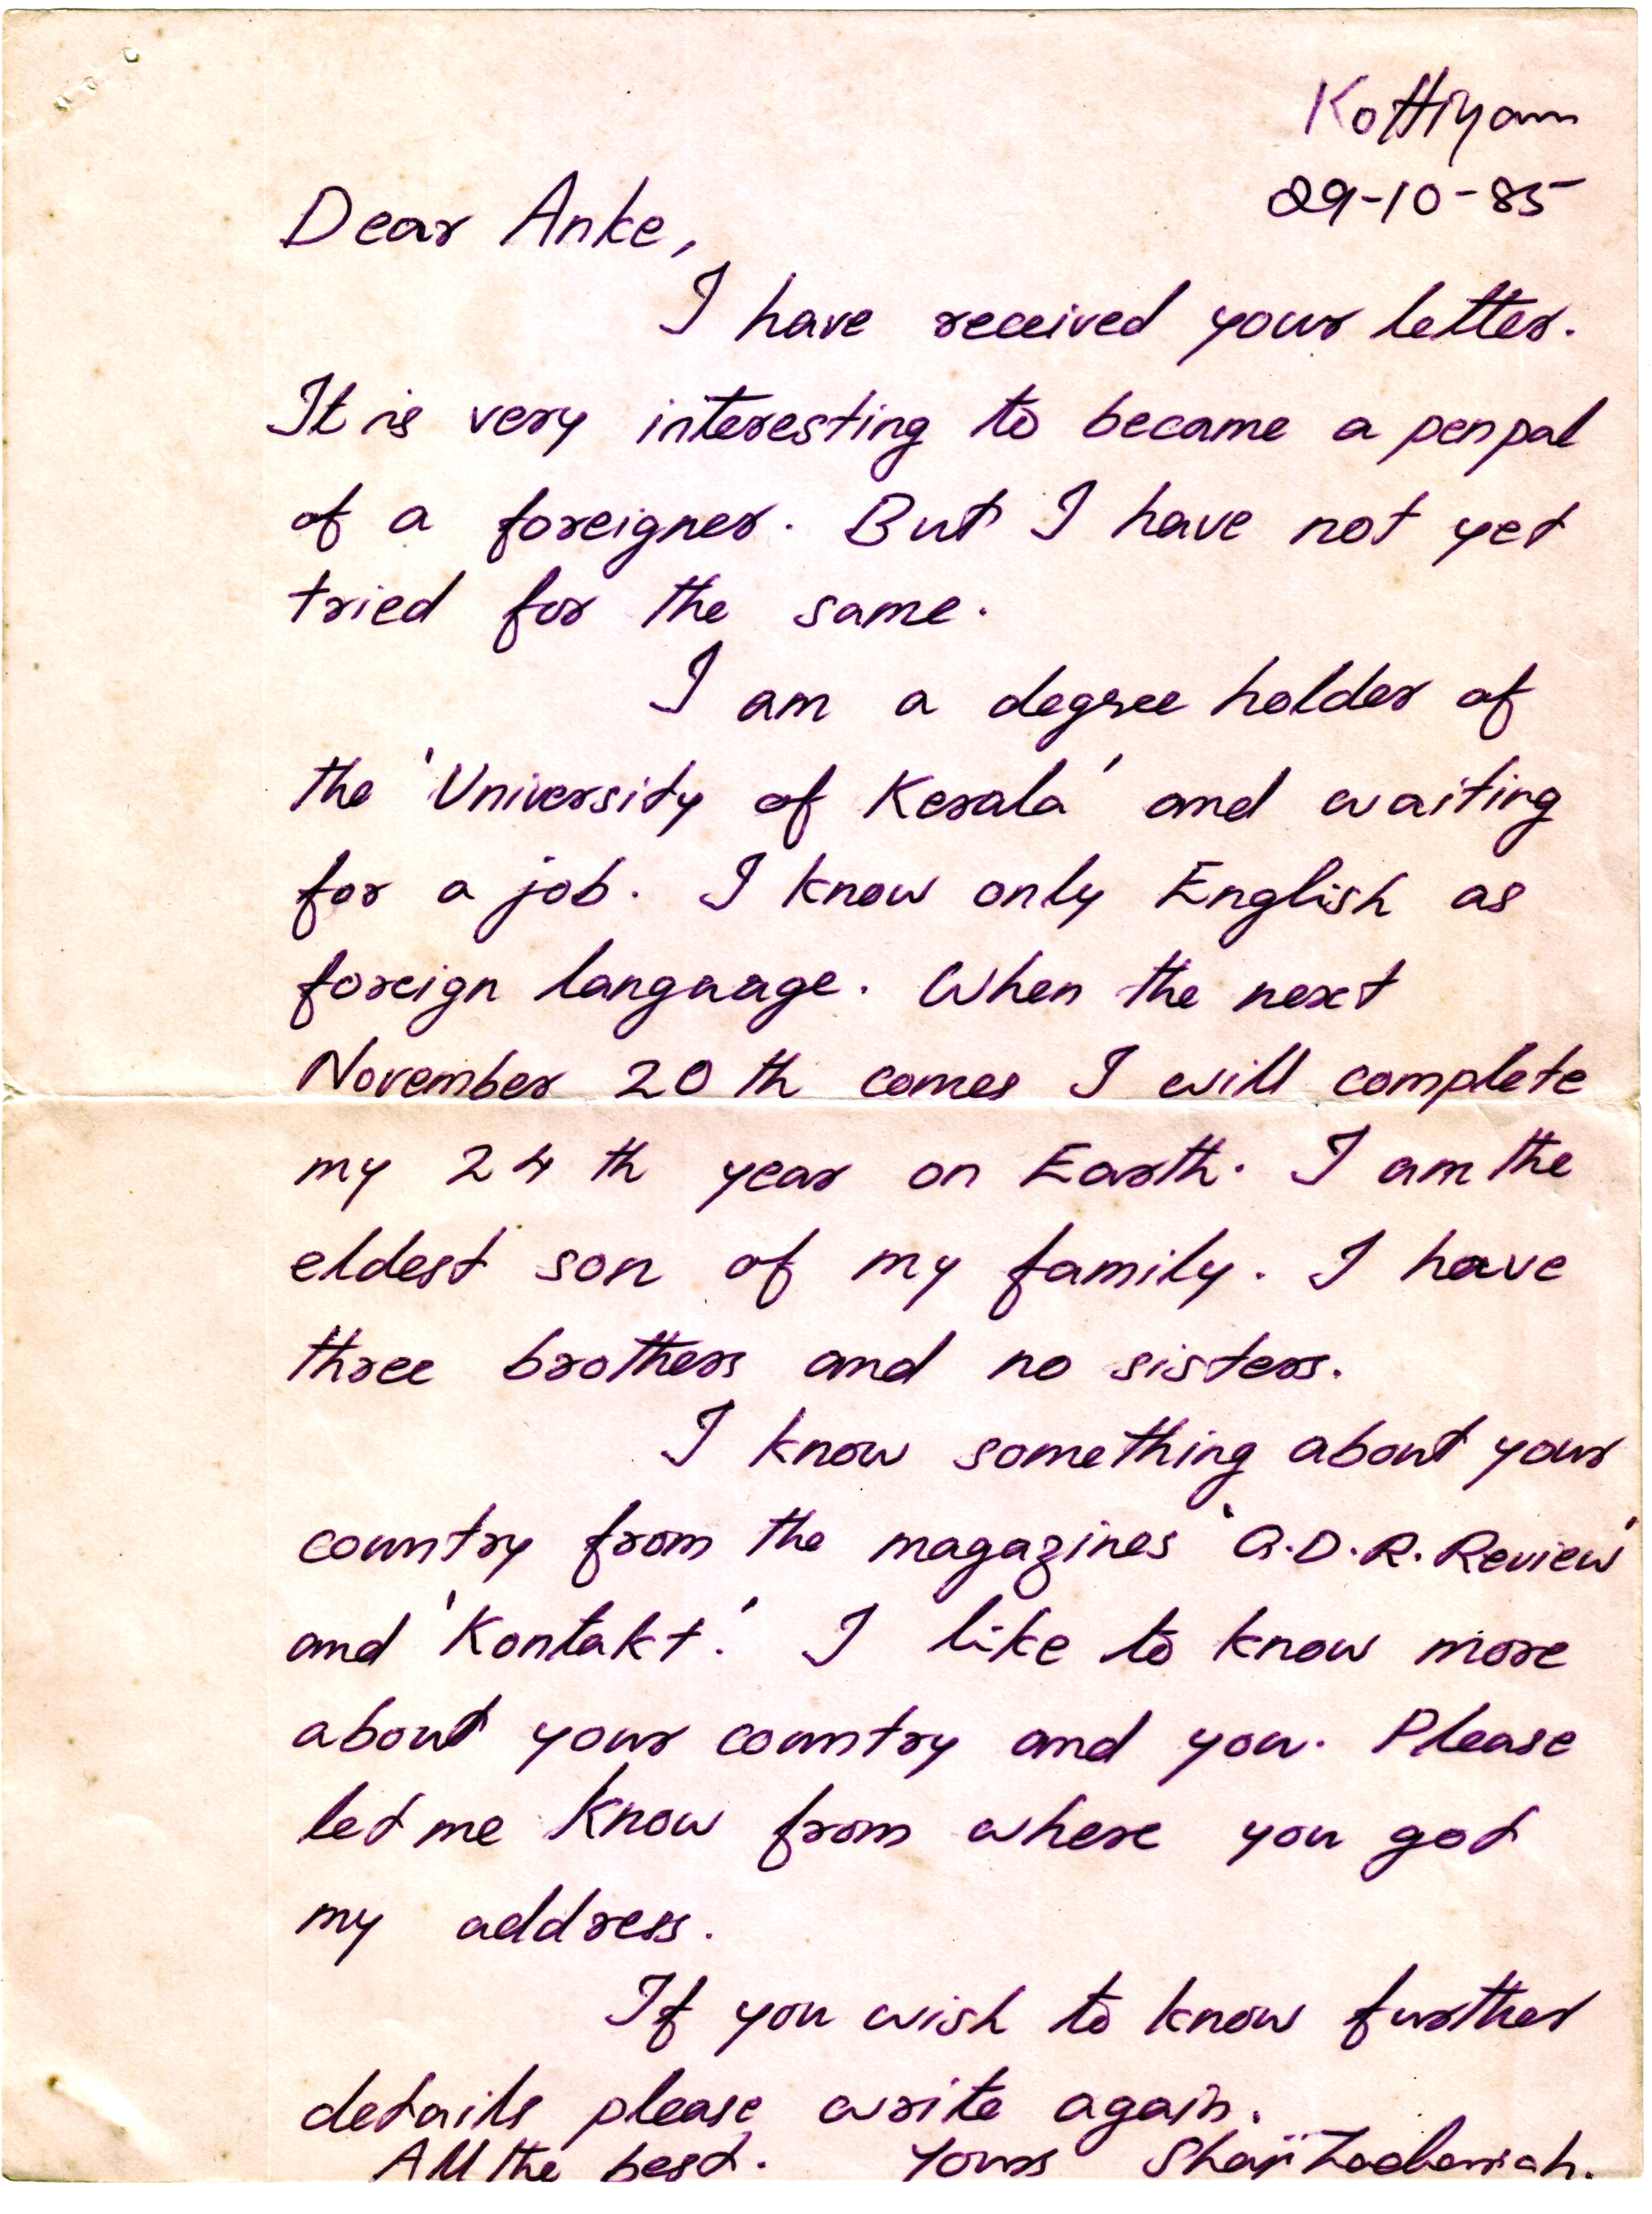 Kottiyam
29-10-85
Dear Anke,
I have received your letter.
It is very interesting to became a penpal
of a foreigner. But I have not yet
tried for the same.
I am a degree holder of
the 'University of Kerala' and waiting
for a job. I know only English as
foreign language. When the next
November 20 th comes I will complete
my 24 th year on Earth. I am the
eldest son of my family. I have
three brothers and no sisters.
I know something about your
country from the magazines 'G.D.R. Review'
and 'Kontakt.' I like to know more
about your country and you. Please
let me know from where you got
my address.
If you wish to know further
details please write again.
All the best. Yours Shaji Zachariah.